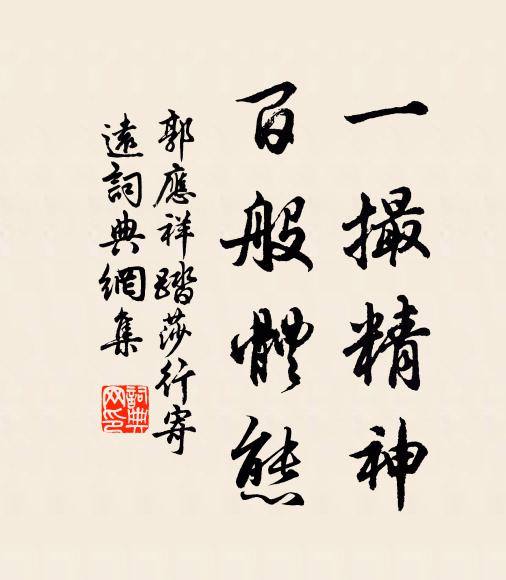 一撮精神
百般體態
郭應祥踏莎行寄
遠詞典網集
詞典
网印